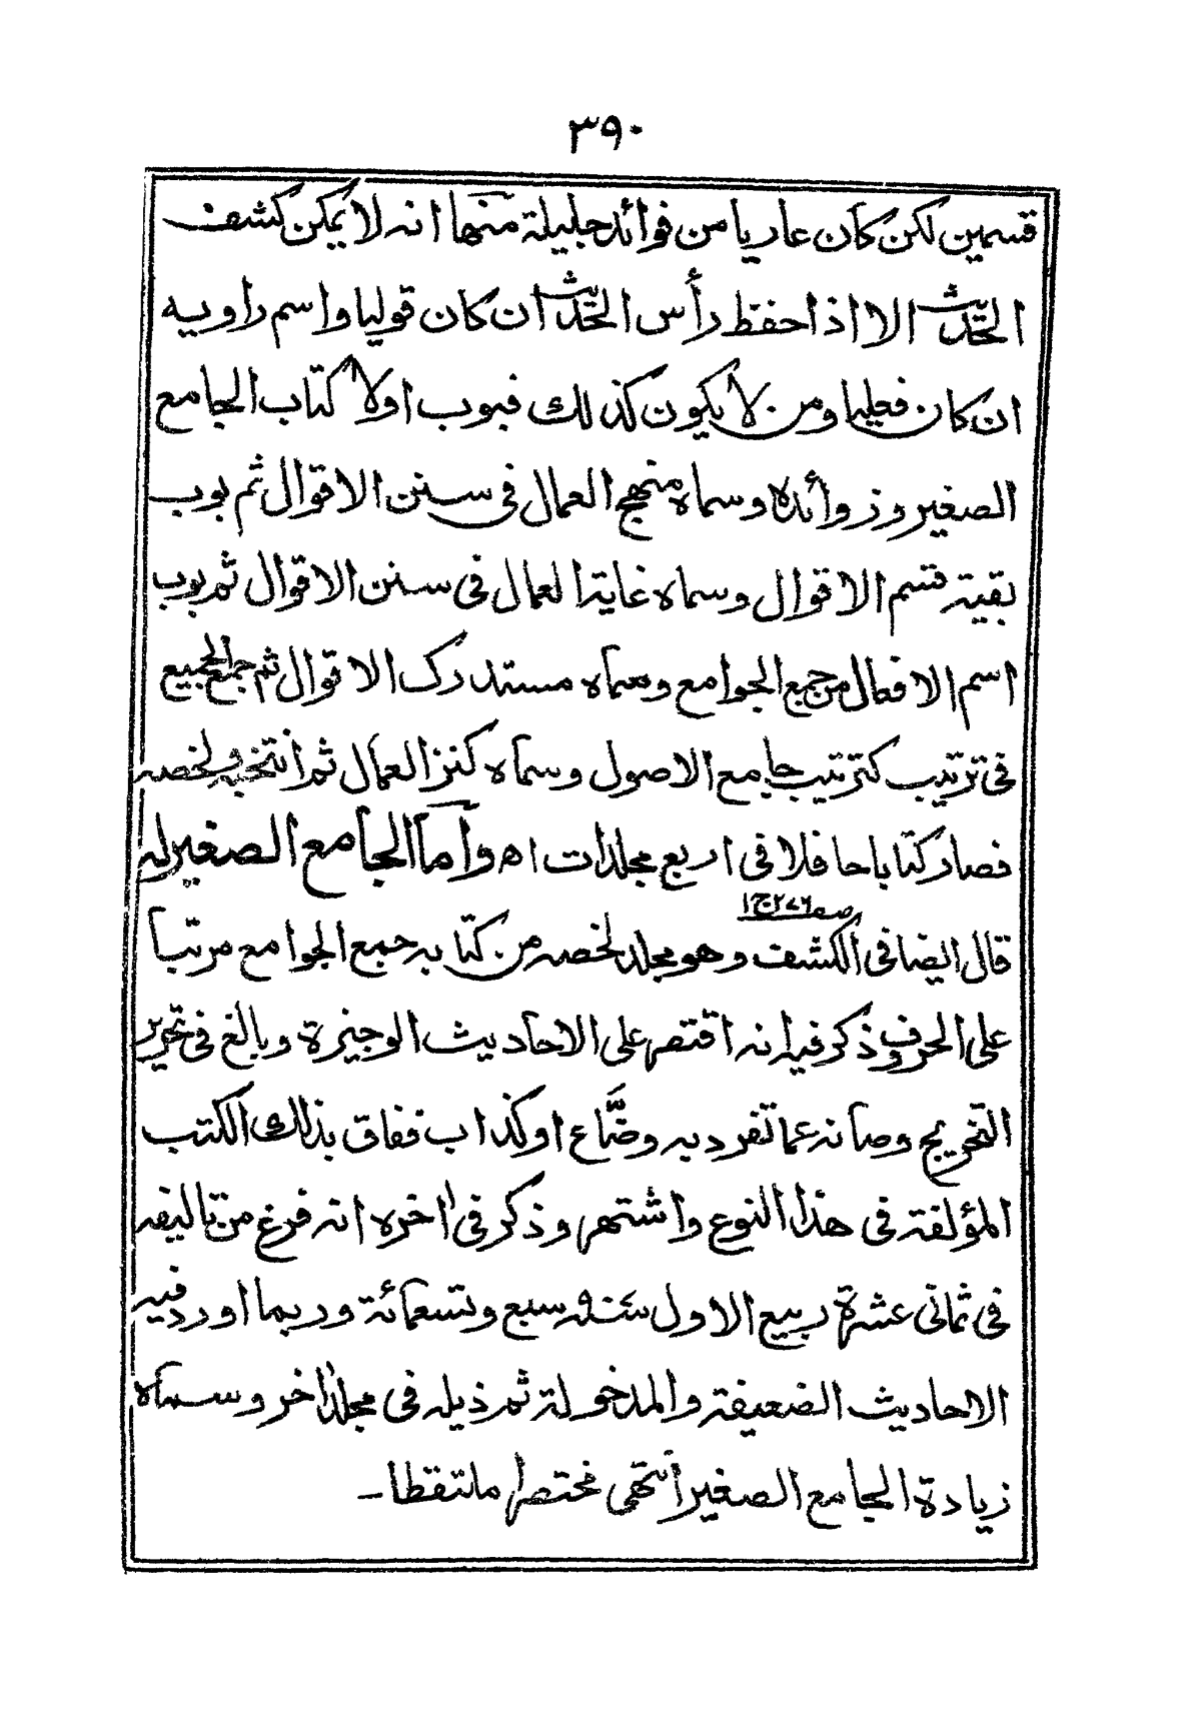 ٣٩٠
قسمين لكن كان عاريا من فوائد جليلة منها انه لا يمكن كشف
الحديث الا اذا حفظ رأس الحديث ان كان قوليا واسم راويه
ان كان فعليا ومن لا يكون كذلك فبوب اولا كتاب الجامع
الصغير وزوائده وسماه منهج العمال فى سنن الاقوال ثم بوب
بقية قسم الاقوال وسماه غاية العمال فى سنن الاقوال ثم بوب
اسم الافعال من جمع الجوامع وسماه مستدرك الاقوال ثم جمع الجميع
فى ترتيب كترتيب جامع الاصول وسماه كنز العمال ثم انتخبه ولخصه
فصار كتابا حافلا فى اربع مجلدات اه وأما الجامع الصغير له
صه ٢٧٦ ج ١
قال ايضا فى الكشف وهو مجلد لخصه من كتابه جمع الجوامع مرتبا
على الحروف ذكر فيه انه اقتصر على الاحاديث الوجيزة وبالغ فى تحرير
التخريج وصانه عما تفرد به وضّاع او كذاب ففاق بذلك الكتب
المؤلفة فى هذا النوع واشتهر وذكر فى اخره انه فرغ من تاليفه
فى ثمانى عشرة ربيع الاول سنة سبع وتسعمائة وربما اورد فيه
الاحاديث الضعيفة والمدخولة ثم ذيله فى مجلد اخر وسماه
زيادة الجامع الصغير انتهى مختصرا ملتقطا ـ